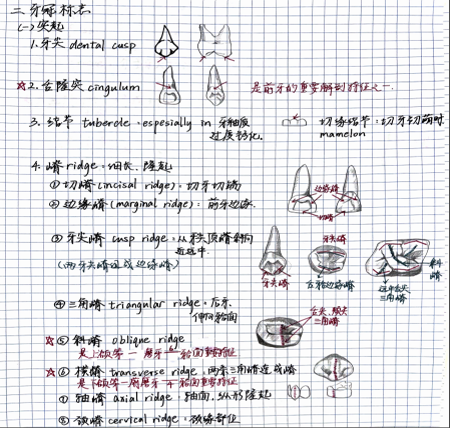 二 牙冠标志
(一) 突起
1. 牙尖 dental cusp
☆2. 舌隆突 cingulum
是前牙的重要解剖特征之一.
3. 结节 tubercle · espesially in 牙釉质
过度钙化.
切缘结节:切牙切萌时
mamelon
4. 嵴 ridge:细长. 隆起
①切嵴(incisal ridge):切牙切端
②边缘嵴(marginal ridge):前牙边缘.
边缘嵴
切嵴
③牙尖嵴 cusp ridge:从尖顶嵴斜向
近远中.
(两牙尖嵴连成边缘嵴)
牙尖嵴
牙尖嵴
右 边缘嵴
斜嵴
远中舌尖
三角嵴
④三角嵴 triangular ridge·后牙.
伸向𬌗面
舌尖、颊尖
三角嵴
☆⑤斜嵴 oblique ridge
是上颌第一磨牙 6 𬌗面重要特征
☆⑥横嵴 transverse ridge. 两条三角嵴连成嵴
是下颌第一前磨牙 4 𬌗面重要特征
⑦轴嵴 axial ridge:轴面. 纵形隆起
⑧颈嵴 cervical ridge:颈缘部位